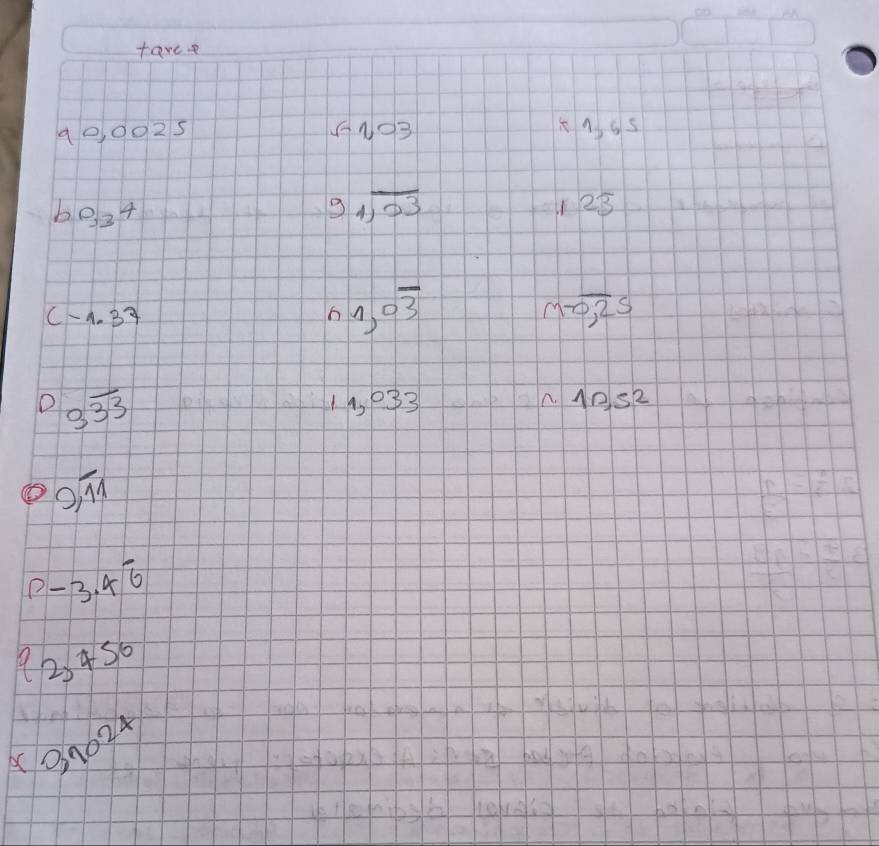 tarea
a 0,0025 f 1,03 k 1,65
b 0,34 g 1,0̅3̅ l 23̅
c -1.37 h 1,03̅ m -0̅,2̅5
D 0,3̅3̅ i 1,033 n 10,52
0,1̅1
p -3.46̅
q 2,456
0,1024